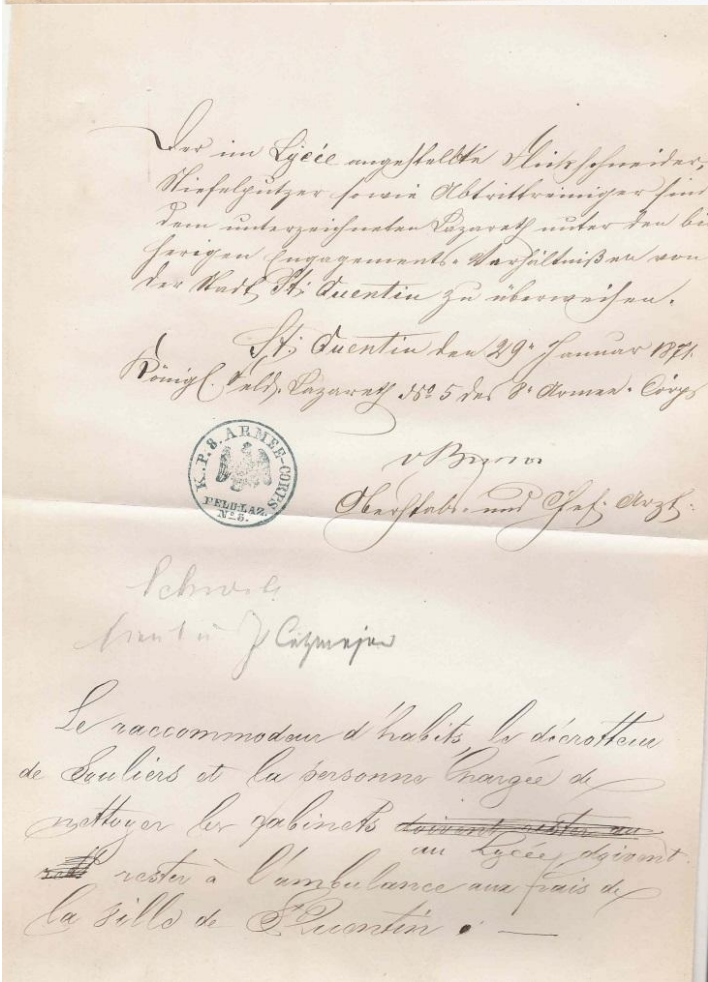 Der im Lycée angestellte Flickschneider,
Stiefelputzer sowie Abtrittreiniger sind
dem unterzeichneten Lazareth unter den bis
herigen Engagements-Verhältnißen von
der Stadt St: Quentin zu überweisen.
St; Quentin den 29n Januar 1871.
Königl. Feld-Lazareth No 5 des 8n Armee-Corps
K. P. 8. ARMEE-CORPS
FELD-LAZ.
No 5.
Oberstabs- und Chef-Arzt:
Le raccommodeur d'habits, le décrotteur
de Souliers et la personne Chargée de
nettoyer les Cabinets doivent rester au
au Lycée, doivent
rester à l'ambulance aux frais de
la Ville de St Quentin . —